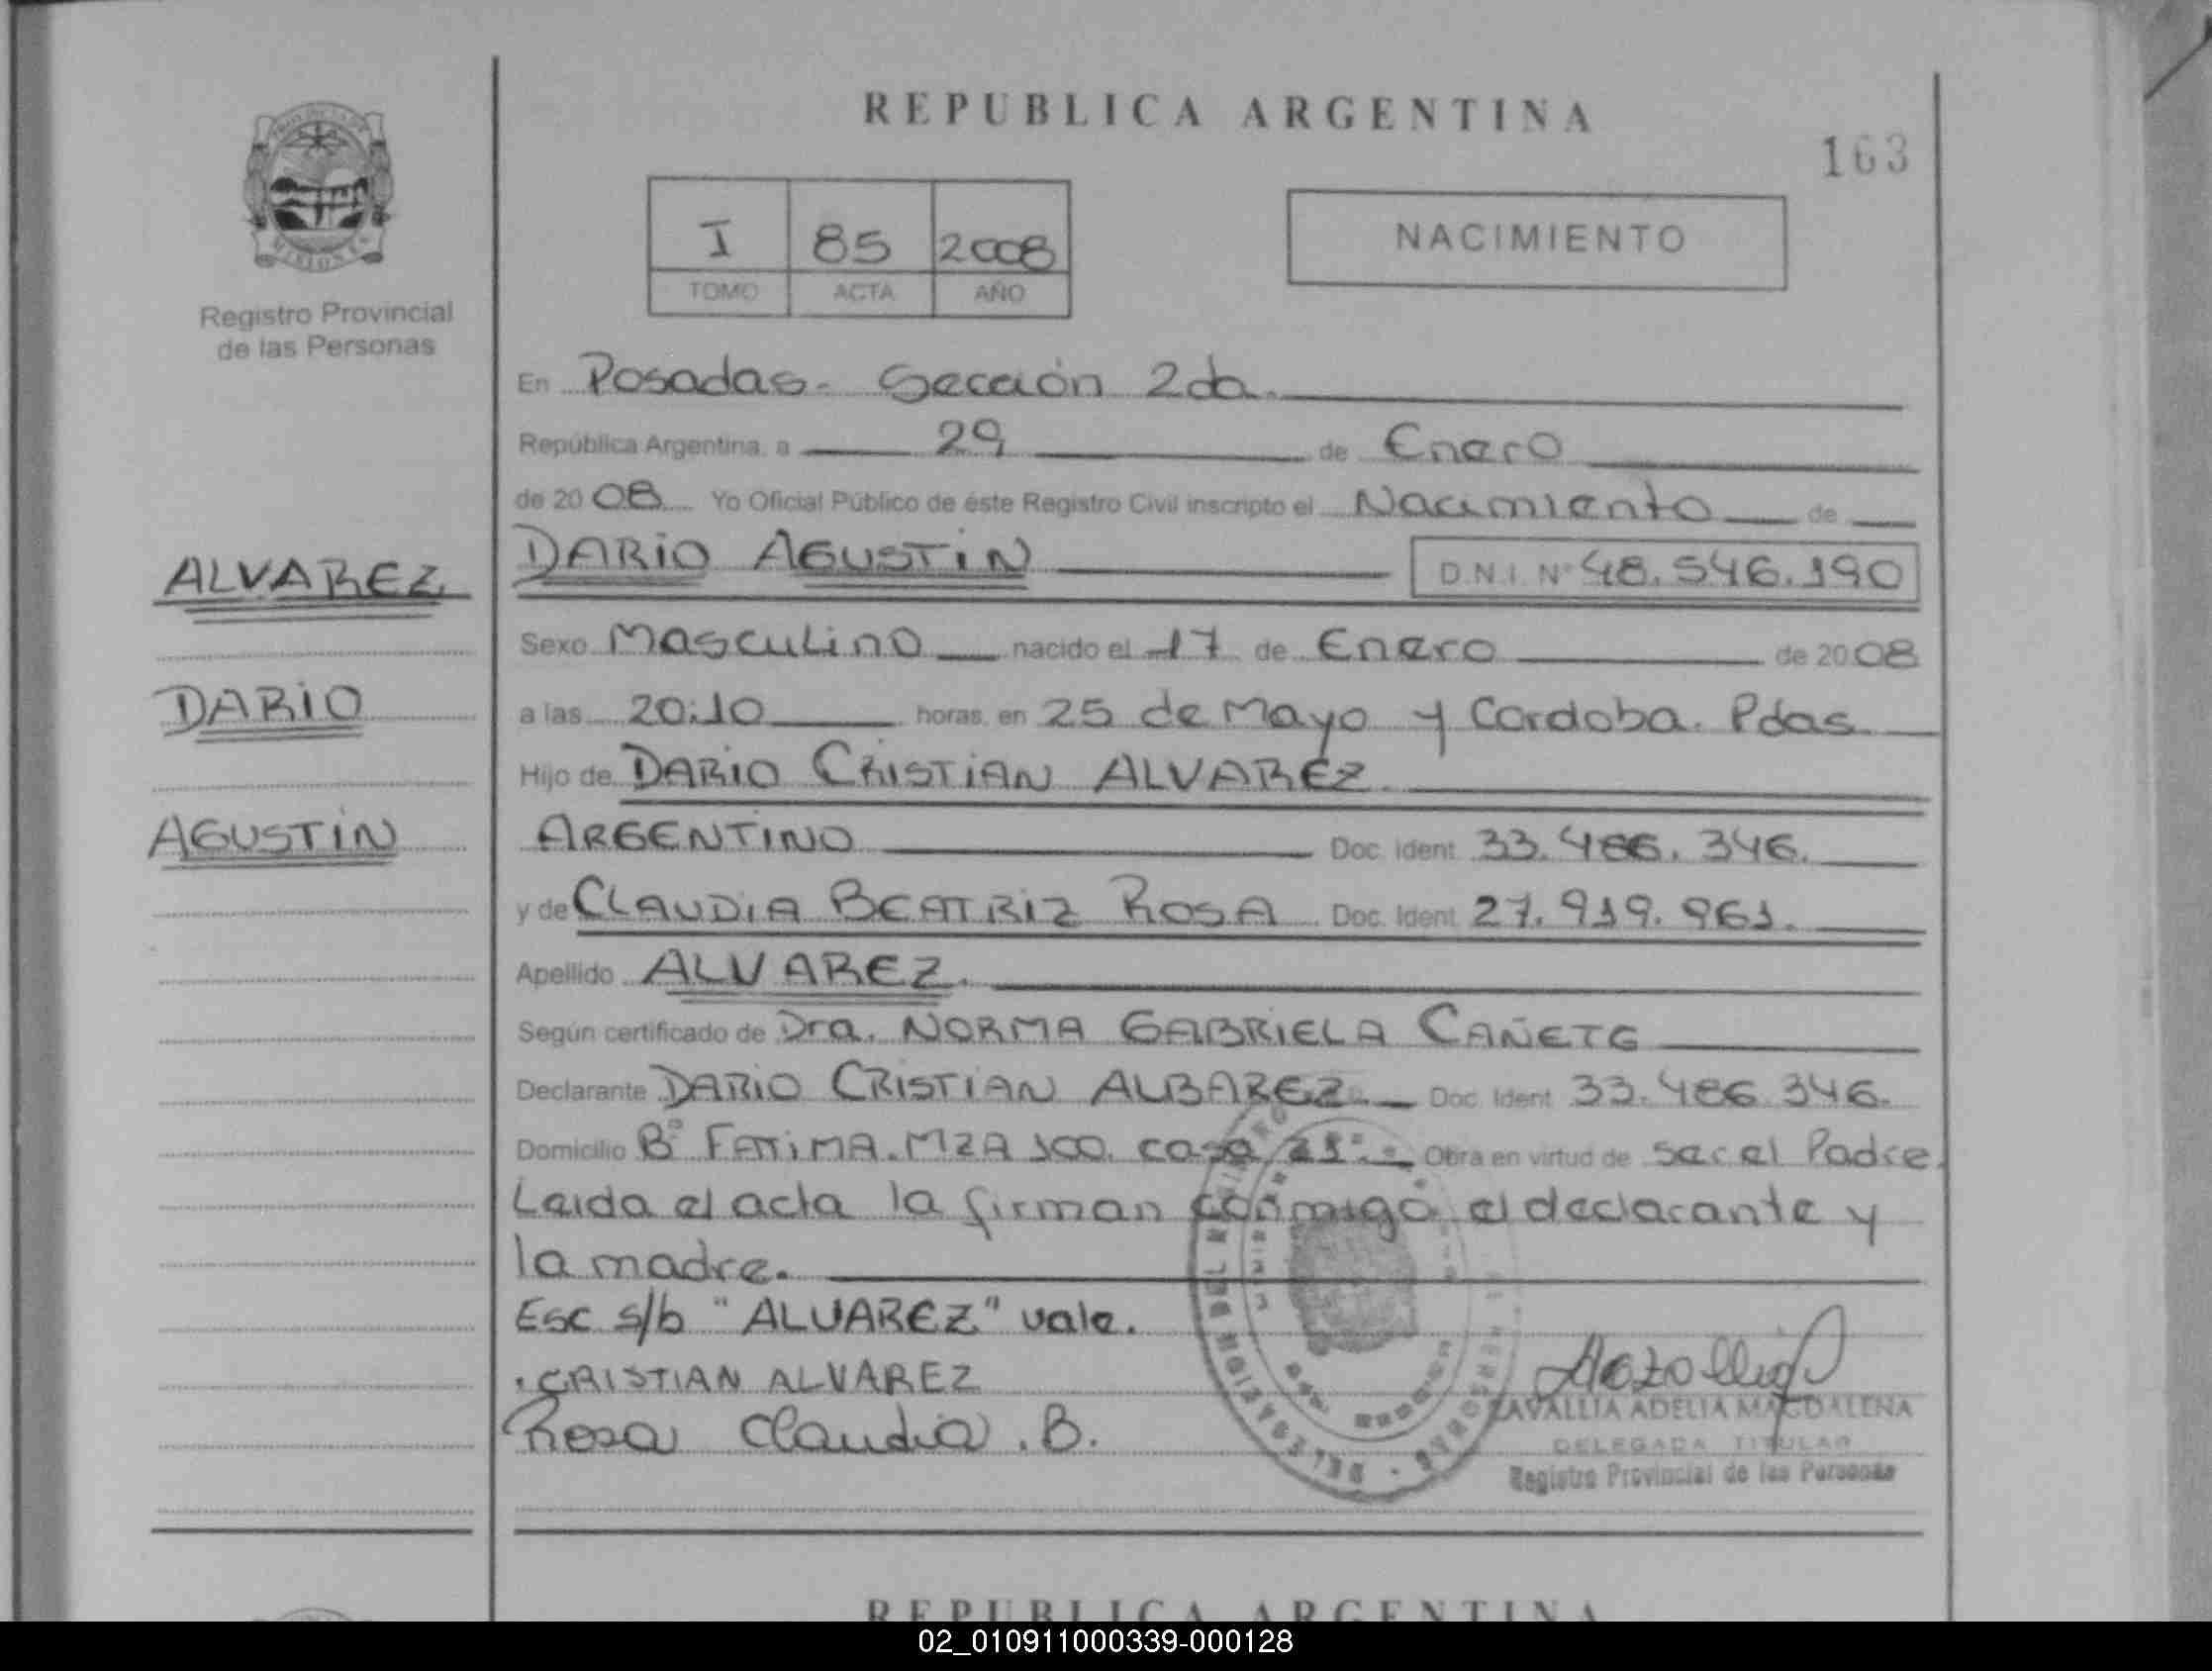 REPUBLICA ARGENTINA
163
I 85 2008
TOMO ACTA AÑO
NACIMIENTO
PROVINCIA DE
MISIONES
Registro Provincial
de las Personas
ALVAREZ
DARIO
AGUSTIN
En Posadas. Sección 2da.
República Argentina, a 29 de Enero
de 2008 Yo Oficial Público de éste Registro Civil inscripto el Nacimiento de
DARIO AGUSTIN D.N.I. Nº 48.546.190
Sexo Masculino nacido el 17 de Enero de 2008
a las 20:10 horas, en 25 de Mayo y Cordoba. Pdas
Hijo de DARIO CRISTIAN ALVAREZ.
ARGENTINO Doc. Ident. 33.486.346.
y de CLAUDIA BEATRIZ ROSA Doc. Ident. 27.919.961.
Apellido ALVAREZ.
Según certificado de Dra. NORMA GABRIELA CAÑETE
Declarante DARIO CRISTIAN ALBAREZ. Doc. Ident. 33.486.346.
Domicilio Bº FATIMA. MZA 100. casa Obra en virtud de ser el Padre.
Leida el acta la firman conmigo el declarante y
la madre.
Esc s/b "ALVAREZ" vale.
CRISTIAN ALVAREZ
Rosa Claudia .B.
ZAVALLIA ADELIA MAGDALENA
DELEGADA TITULAR
Registro Provincial de las Personas
REPUBLICA ARGENTINA
02_010911000339-000128